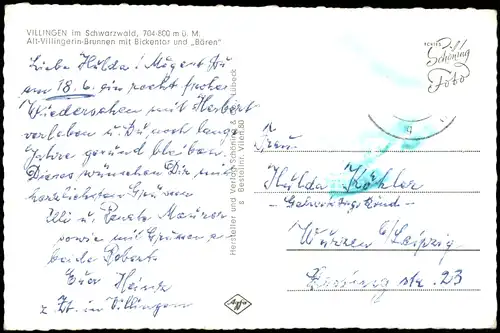 VILLINGEN im Schwarzwald, 704-800 m ü. M.
Alt-Villingerin-Brunnen mit Bickentor und „Bären"
Liebe Hilda! Mögest Du
am 18.6. ein recht frohes
Wiedersehen mit Herbert
verleben u. Du noch lange
Jahre gesund bleiben!
Dieses wünschen Dir mit
herzlichsten Grüßen
Illi u. Renate
sowie mit Grüßen a.
beide Roberts
Eva Heinz
z. Zt. in Villingen
Hersteller und Verlag Schöning & Co., Lübeck
S Bestellnr. Villen.80
ECHTES
Schöning
Foto
Frau
Hilda Köhler
Wurzen/Leipzig
str. 23
Agfa